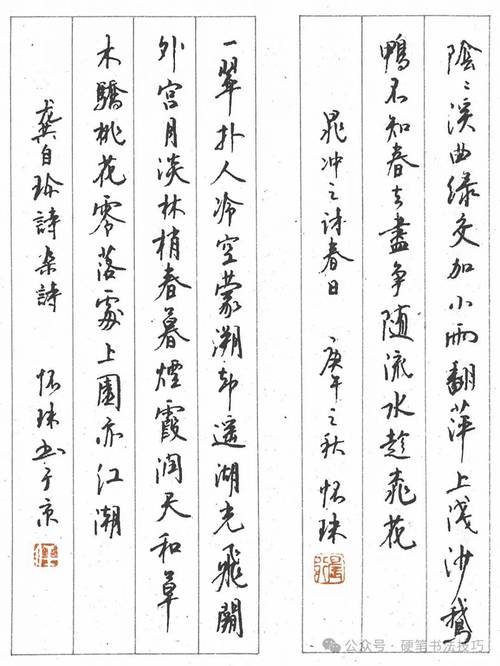 陰〻溪曲绿交加小雨翻萍上浅沙鹅
鴨不知春去盡争随流水趁桃花
晁冲之诗春日 庚午之秋 怀珠
一翠扑人冷空蒙溯却遥湖光飛闕
外宫月淡林梢春暮煙霞润天和草
木驕桃花零落處上園亦江潮
龔自珍詩杂詩 怀珠书于京
公众号·硬笔书法技巧